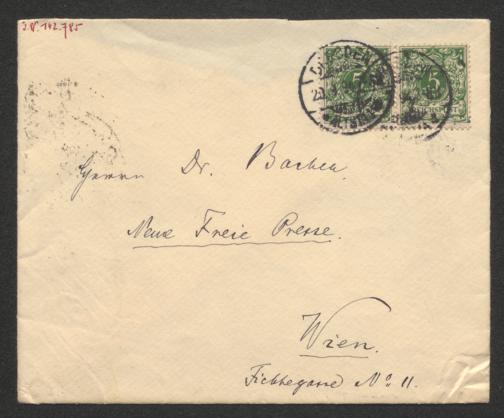 I.N. 142.785
DRESDEN
5 5
Herrn Dr. Bacher,
Neue Freie Presse.
Wien.
Fichtegasse No. 11.